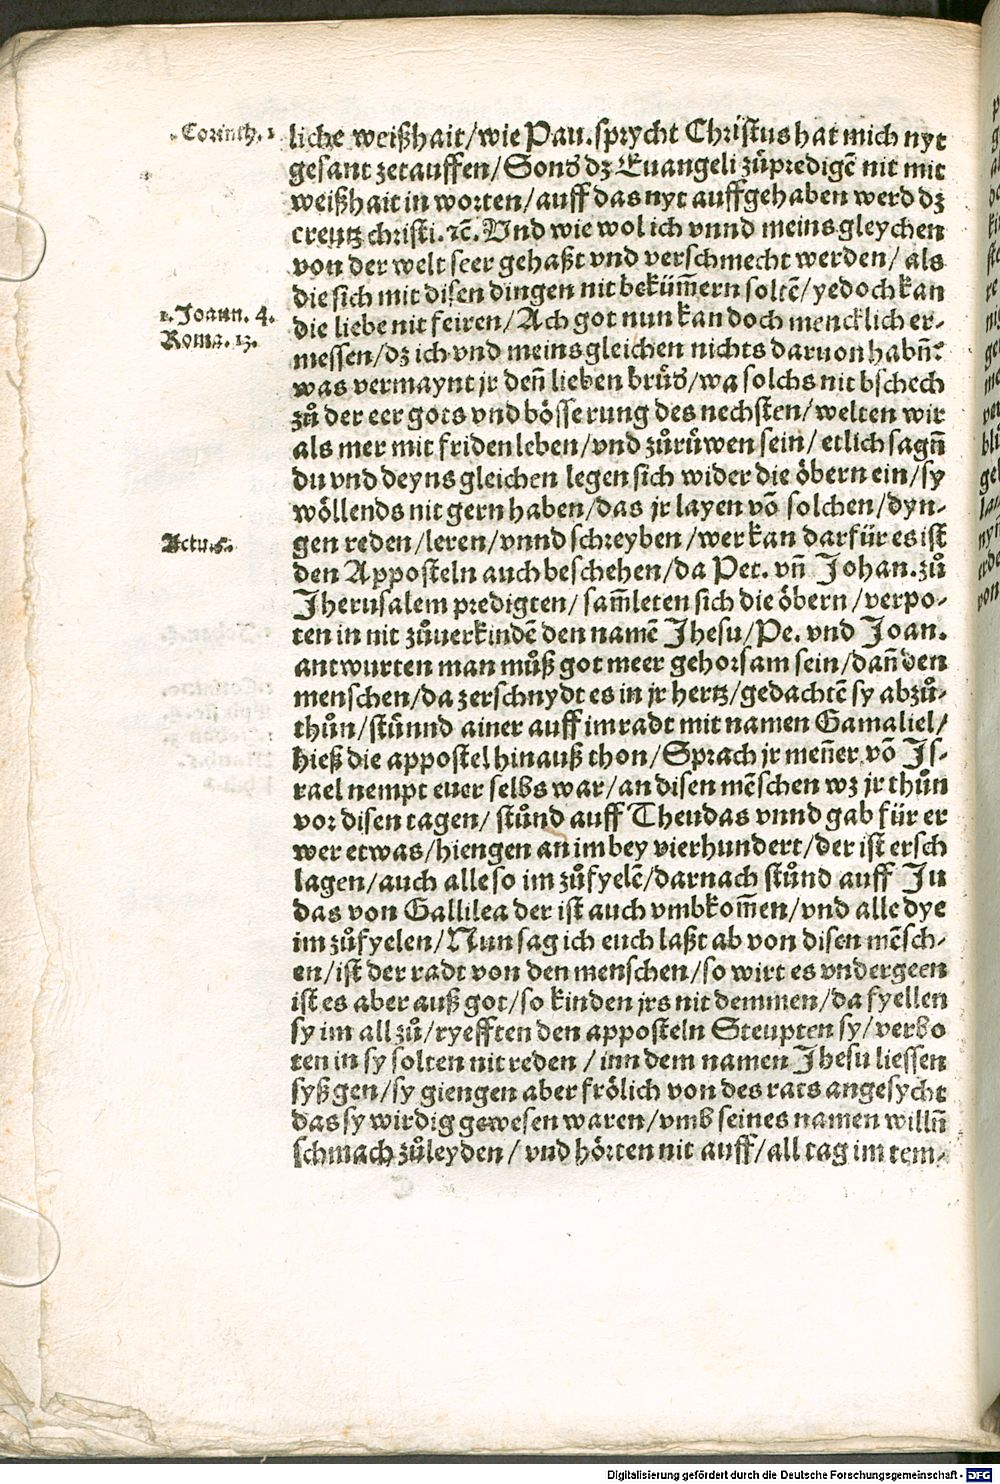 1. Corinth. 1
liche weißhait/wie Pau. sprycht Christus hat mich nyt
gesant zetauffen/Sonđ dz Euangeli zůpredigẽ nit mit
weißhait in worten/auff das nyt auffgehaben werd dz
creutz christi. ꝛc̃. Vnd wie wol ich vnnd meins gleychen
von der welt seer gehaßt vnd verschmecht werden/ als
die sich mit disen dingen nit bekům̃ern soltẽ/yedoch kan
1. Joann. 4.
die liebe nit feiren/Ach got nun kan doch mencklich er-
Roma. 13.
messen/dz ich vnd meins gleichen nichts daruon habñ?
was vermaynt jr deñ lieben brůđ/wa solchs nit bschech
zů der eer gots vnd bösserung des nechsten/welten wir
als mer mit friden leben/vnd zůrůwen sein/etlich sagñ
du vnd deyns gleichen legen sich wider die öbern ein/sy
wöllends nit gern haben/das jr layen võ solchen/dyn-
Actu. 5.
gen reden/leren/vnnd schreyben/wer kan darfür es ist
den Apposteln auch beschehen/da Pet. vñ Johan. zů
Jherusalem predigten/ sam̃leten sich die öbern/verpo-
ten in nit zůuerkindẽ den namẽ Jhesu/Pe. vnd Joan.
antwurten man můß got meer gehorsam sein/dañ den
menschen/da zerschnydt es in jr hertz/gedachtẽ sy abzů-
thůn/stůnnd ainer auff im radt mit namen Gamaliel/
hieß die appostel hinauß thon/Sprach jr meñer võ Js-
rael nempt euer selbs war/an disen mẽschen wz jr thůn
vor disen tagen/ stůnd auff Theudas vnnd gab für er
wer etwas/hiengen an im bey vierhundert/der ist ersch
lagen/auch alle so im zůfyelẽ/darnach stůnd auff Ju
das von Gallilea der ist auch vmbkom̃en/vnd alle dye
im zůfyelen/Nun sag ich euch laßt ab von disen mẽsch-
en/ist der radt von den menschen/so wirt es vndergeen
ist es aber auß got/so kinden jrs nit demmen/da fyellen
sy im all zů/ryefften den apposteln Steupten sy/verbo
ten in sy solten nit reden/inn dem namen Jhesu liessen
syßgen/sy giengen aber frölich von des rats angesycht
das sy wirdig gewesen waren/vmb seines namen willñ
schmach zůleyden/vnd hörten nit auff/all tag im tem-
Digitalisierung gefördert durch die Deutsche Forschungsgemeinschaft - DFG